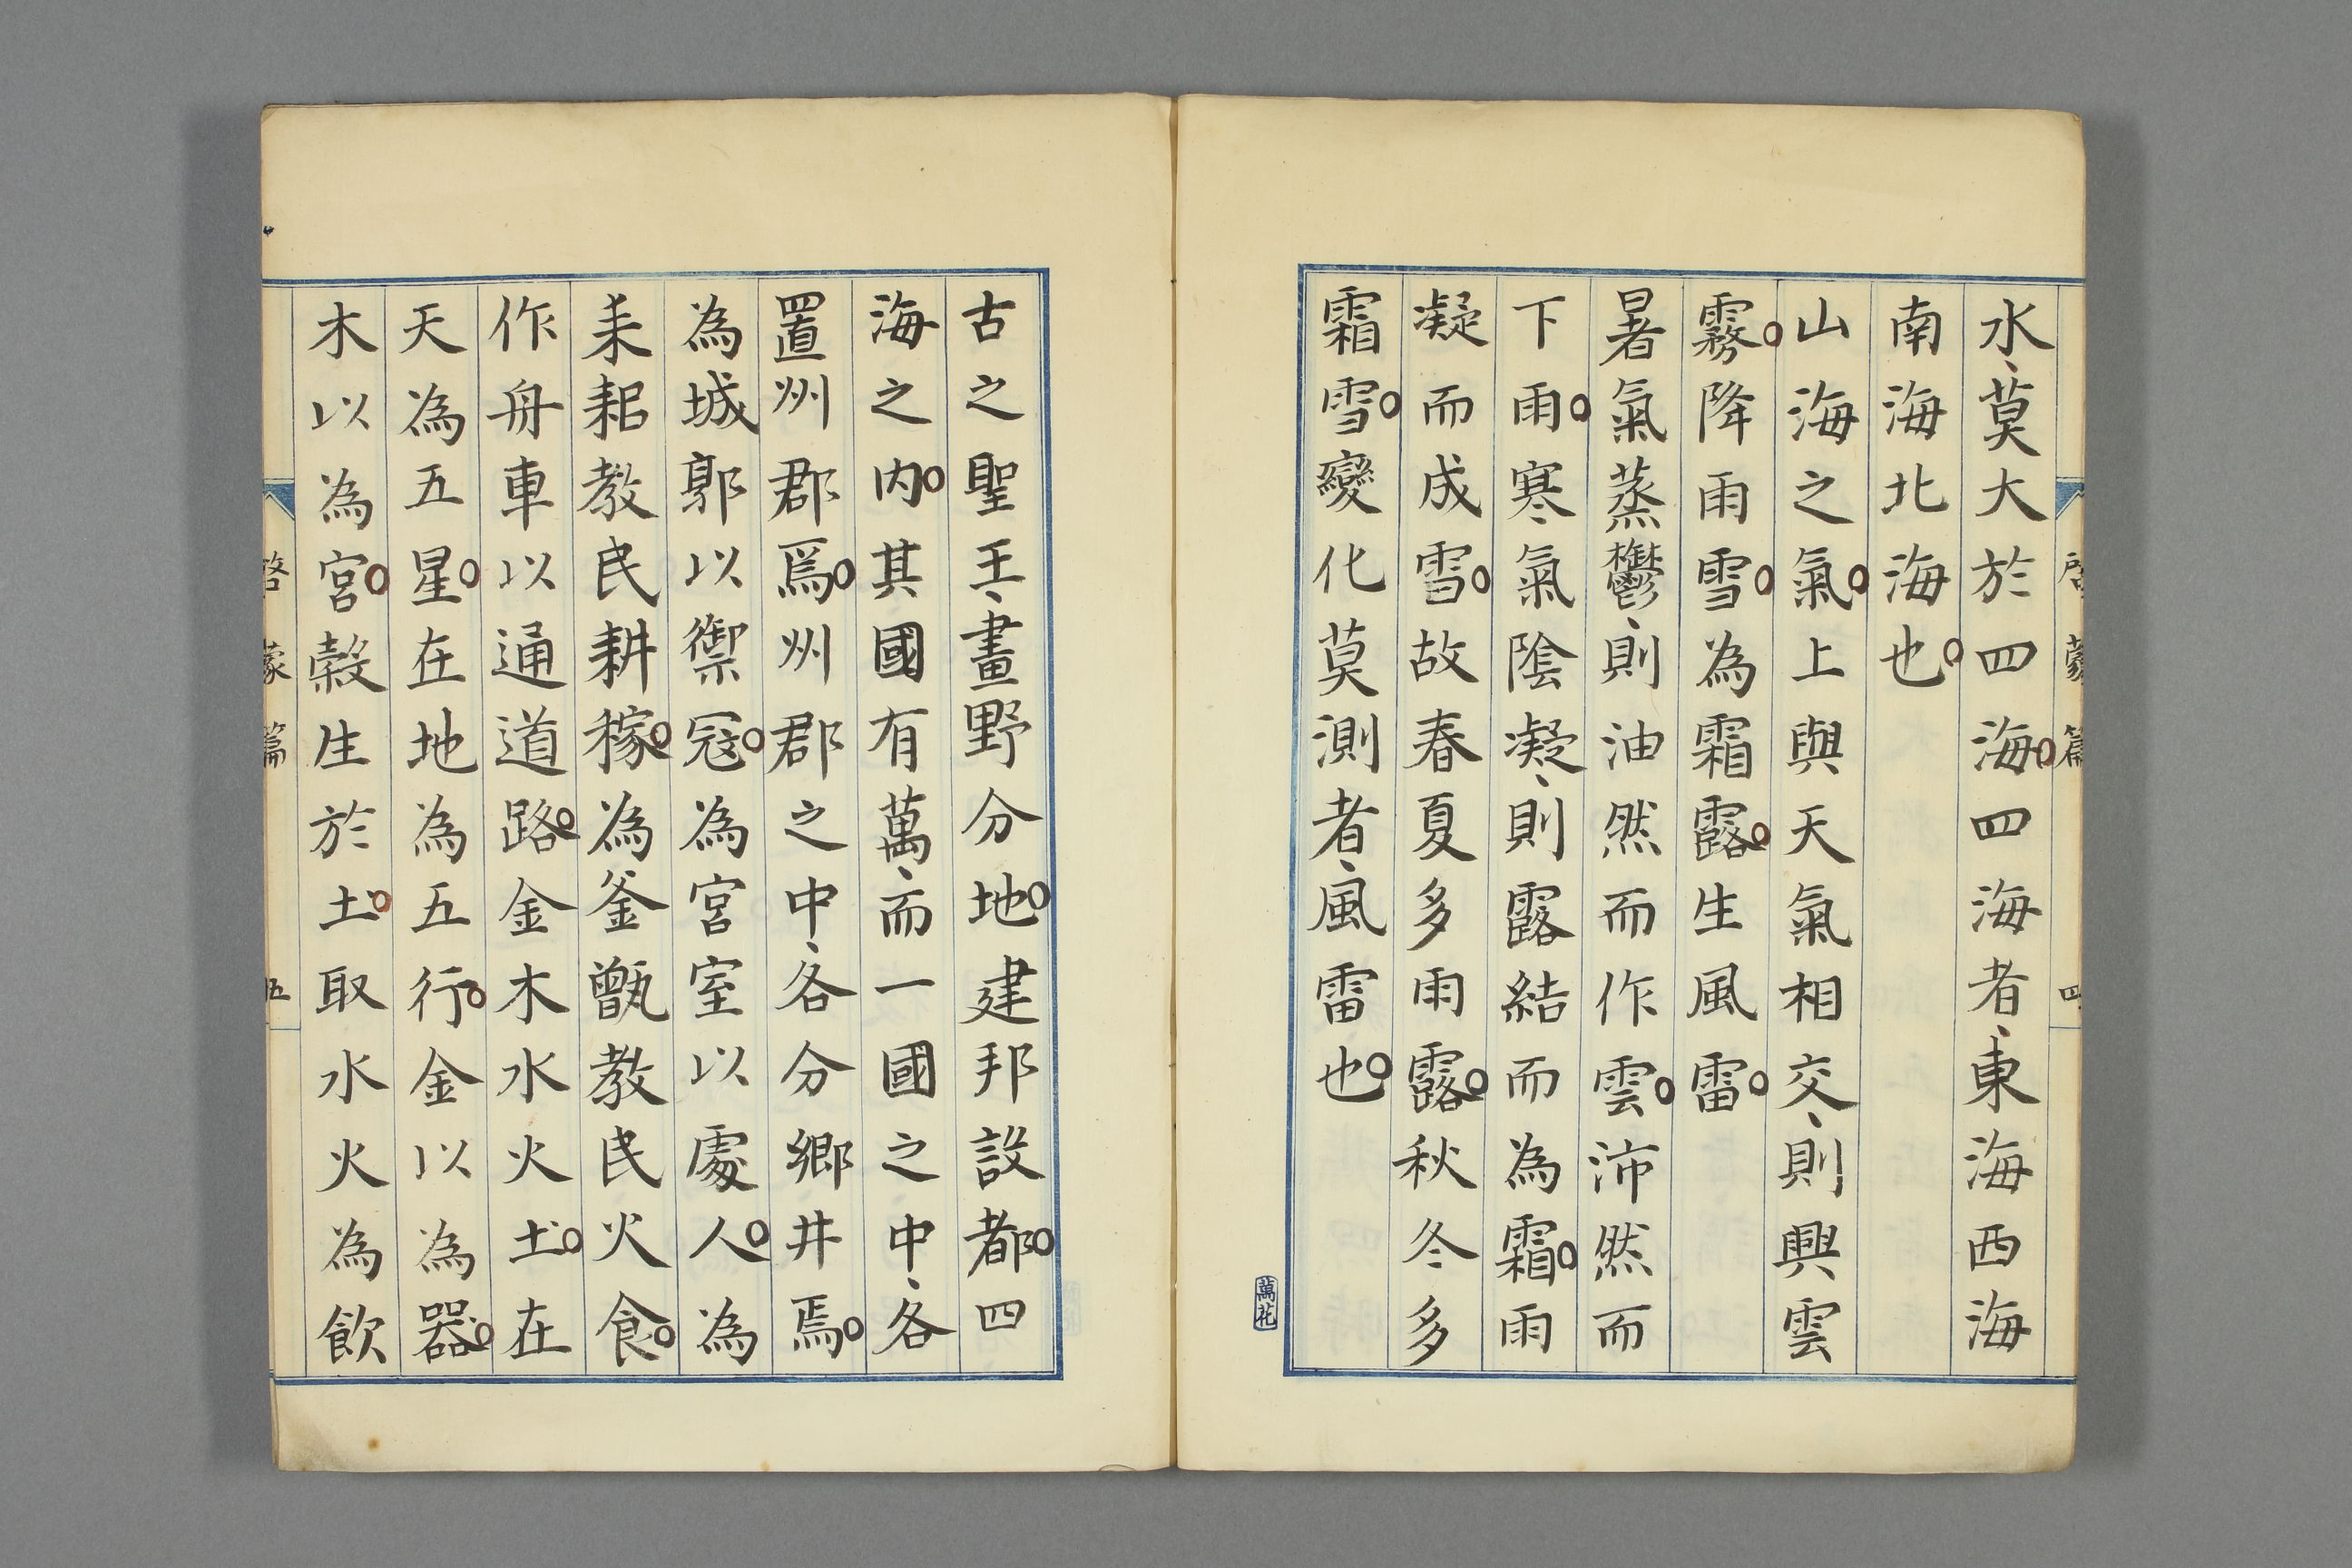 水、莫大於四海。四海者、東海西海
南海北海也。
山海之氣。上與天氣相交、則興雲
霧。降雨雪。為霜露。生風雷。
暑氣蒸鬱、則油然而作雲。沛然而
下雨。寒氣陰凝、則露結而為霜。雨
凝而成雪。故春夏多雨露。秋冬多
霜雪。變化莫測者、風雷也。
古之聖王、畫野分地。建邦設都。四
海之内。其國有萬、而一國之中、各
置州郡焉。州郡之中、各分鄉井焉。
為城郭以禦冦。為宮室以處人。為
耒耜教民耕稼。為釜甑教民火食。
作舟車以通道路。金木水火土。在
天為五星。在地為五行。金以為器。
木以為宮。穀生於土。取水火為飲
啓蒙篇
四
啓蒙篇
五
萬花